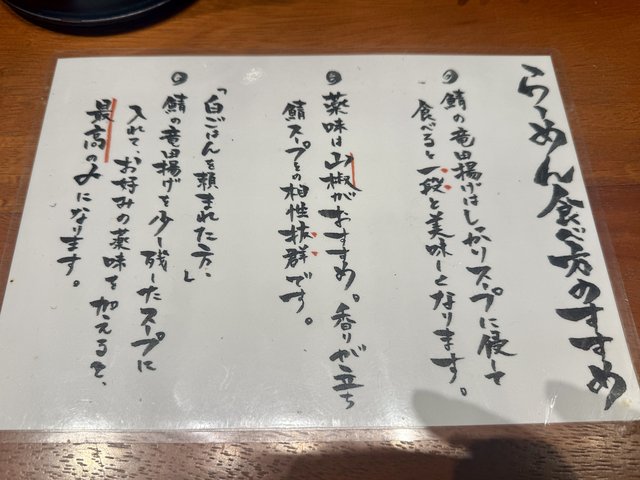 らーめん食べ方のすすめ
鯖の竜田揚げはしっかりスープに侵して
食べると一段と美味しくなります。
薬味は山椒がおすすめ。香りが立ち
鯖スープとの相性抜群です。
「白ごはんを頼まれた方」
鯖の竜田揚げを少し残したスープに
入れて、お好みの薬味を加えると、
最高の〆になります。